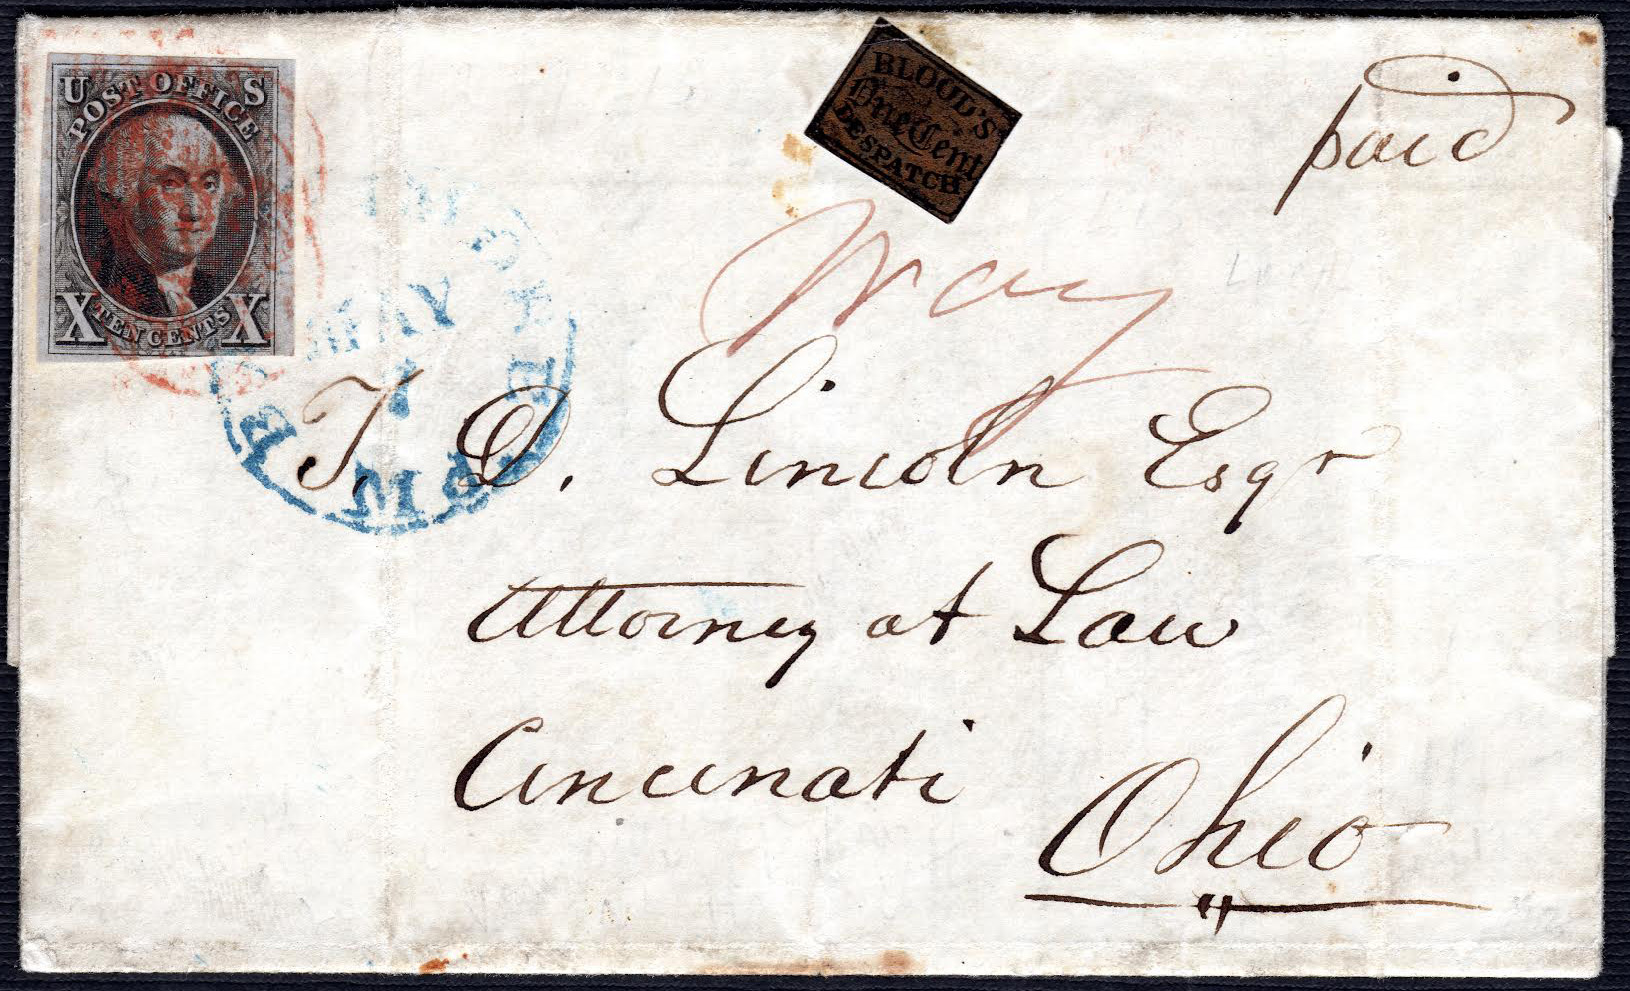 U S
POST OFFICE
X TEN CENTS X
BLOOD'S
One Cent
DESPATCH
paid
Way
MAY
1
T. D. Lincoln Esqr
Attorney at Law
Cincinati
Ohio